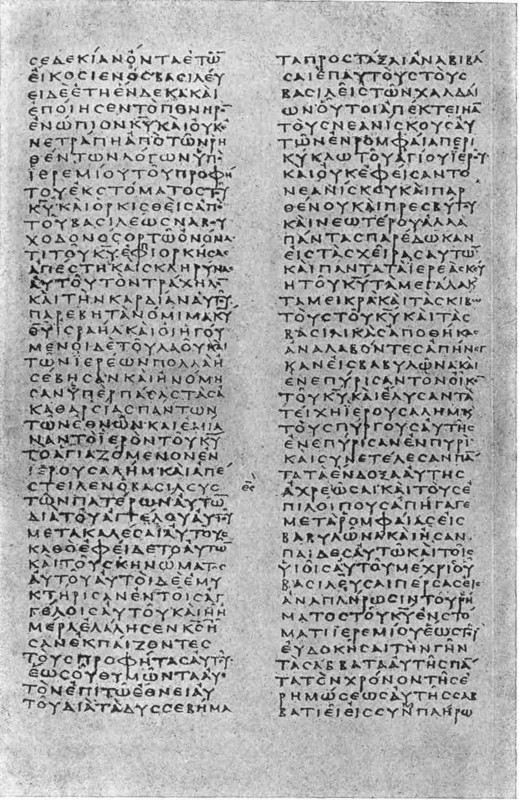 ϹΕΔΕΚΙΑΝΟΝΤΑΕΤΩ̅
ΕΙΚΟϹΙΕΝΟϹΒΑϹΙΛΕΥ
ΕΙΔΕΕΤΗΕΝΔΕΚΑΚΑΙ
ΕΠΟΙΗϹΕΝΤΟΠΟΝΗΡΟ̅
ΕΝΩΠΙΟΝΚ̅Υ̅ΚΑΙΟΥΚΕ
ΝΕΤΡΑΠΗΑΠΟΤΩΝΡΗ
ΘΕΝΤΩΝΛΟΓΩΝΥΠΟ
ΙΕΡΕΜΙΟΥΤΟΥΠΡΟΦΗ
ΤΟΥΕΚϹΤΟΜΑΤΟϹΤΟΥ
Κ̅Υ̅ΚΑΙΟΡΚΙϹΘΕΙϹΑΠΟ
ΤΟΥΒΑϹΙΛΕΩϹΝΑΒΟΥ
ΧΟΔΟΝΟϹΟΡΤΩΟΝΟΜΑ
ΤΙΤΟΥΚ̅Υ̅ΕΦΙΟΡΚΗϹΑϹ
ΑΠΕϹΤΗΚΑΙϹΚΛΗΡΥΝΑϹ
ΑΥΤΟΥΤΟΝΤΡΑΧΗΛΟ̅
ΚΑΙΤΗΝΚΑΡΔΙΑΝΑΥΤΟΥ
ΠΑΡΕΒΗΤΑΝΟΜΙΜΑΚ̅Υ̅
ΘΥΙϹΡΑΗΛΚΑΙΟΙΗΓΟΥ
ΜΕΝΟΙΔΕΤΟΥΛΑΟΥΚΑΙ
ΤΩΝΙΕΡΕΩΝΠΟΛΛΑΗ
ϹΕΒΗϹΑΝΚΑΙΗΝΟΜΗ
ϹΑΝΥΠΕΡΠΑϹΑϹΤΑϹΑ
ΚΑΘΑΡϹΙΑϹΠΑΝΤΩΝ
ΤΩΝΕΘΝΩΝΚΑΙΕΜΙΑ
ΝΑΝΤΟΙΕΡΟΝΤΟΥΚ̅Υ̅
ΤΟΑΓΙΑΖΟΜΕΝΟΝΕΝ
ΙΕΡΟΥϹΑΛΗΜΚΑΙΑΠΕ
ϹΤΕΙΛΕΝΟΒΑϹΙΛΕΥϹ
ΤΩΝΠΑΤΕΡΩΝΑΥΤΩ̅
ΔΙΑΤΟΥΑΓΓΕΛΟΥΑΥΤΟΥ
ΜΕΤΑΚΑΛΕϹΑΙΑΥΤΟΥϹ
ΚΑΘΟΕΦΕΙΔΕΤΟΑΥΤΩ̅
ΚΑΙΤΟΥϹΚΗΝΩΜΑΤΟϹ
ΑΥΤΟΥΑΥΤΟΙΔΕΕΜΥ
ΚΤΗΡΙϹΑΝΕΝΤΟΙϹΑΓ
ΓΕΛΟΙϹΑΥΤΟΥΚΑΙΗΗ
ΜΕΡΑΕΛΑΛΗϹΕΝΚ̅Ϲ̅Η
ϹΑΝΕΚΠΑΙΖΟΝΤΕϹ
ΤΟΥϹΠΡΟΦΗΤΑϹΑΥΤΟΥ
ΕΩϹΟΥΘΥΜΩΝΤΑΑΥ
ΤΟΝΕΠΙΤΩΕΘΝΕΙΑΥ
ΤΟΥΔΙΑΤΑΔΥϹϹΕΒΗΜΑ
ΤΑΠΡΟϹΤΑΞΑΙΑΝΑΒΙΒΑ
ϹΑΙΕΠΑΥΤΟΥϹΤΟΥϹ
ΒΑϹΙΛΕΙϹΤΩΝΧΑΛΔΑΙ
ΩΝΟΥΤΟΙΑΠΕΚΤΕΙΝΑ̅
ΤΟΥϹΝΕΑΝΙϹΚΟΥϹΑΥ
ΤΩΝΕΝΡΟΜΦΑΙΑΠΕΡΙ
ΚΥΚΛΩΤΟΥΑΓΙΟΥΙΕΡΟΥ
ΚΑΙΟΥΚΕΦΕΙϹΑΝΤΟ
ΝΕΑΝΙϹΚΟΥΚΑΙΠΑΡ
ΘΕΝΟΥΚΑΙΠΡΕϹΒΥΤΟΥ
ΚΑΙΝΕΩΤΕΡΟΥΑΛΛΑ
ΠΑΝΤΑϹΠΑΡΕΔΩΚΑΝ
ΕΙϹΤΑϹΧΕΙΡΑϹΑΥΤΩ̅
ΚΑΙΠΑΝΤΑΤΑΙΕΡΑϹΚΕΥ
ΗΤΟΥΚ̅Υ̅ΤΑΜΕΓΑΛΑΚ
ΤΑΜΕΙΚΡΑΚΑΙΤΑϹΚΙΒΩ
ΤΟΥϹΤΟΥΚ̅Υ̅ΚΑΙΤΑϹ
ΒΑϹΙΛΙΚΑϹΑΠΟΘΗΚΑϹ
ΑΝΑΛΑΒΟΝΤΕϹΑΠΗΝΕΓ
ΚΑΝΕΙϹΒΑΒΥΛΩΝΑΚΑΙ
ΕΝΕΠΥΡΙϹΑΝΤΟΝΟΙΚΟ̅
ΤΟΥΚ̅Υ̅ΚΑΙΕΛΥϹΑΝΤΑ
ΤΕΙΧΗΙΕΡΟΥϹΑΛΗΜΚ
ΤΟΥϹΠΥΡΓΟΥϹΑΥΤΗϹ
ΕΝΕΠΥΡΙϹΑΝΕΝΠΥΡΙ
ΚΑΙϹΥΝΕΤΕΛΕϹΑΝΠΑ̅
ΤΑΤΑΕΝΔΟΞΑΑΥΤΗϹ
ΑΧΡΕΩϹΑΙΚΑΙΤΟΥϹΕ
ΠΙΛΟΙΠΟΥϹΑΠΗΓΑΓΕ
ΜΕΤΑΡΟΜΦΑΙΑϹΕΙϹ
ΒΑΒΥΛΩΝΑΚΑΙΗϹΑΝ
ΠΑΙΔΕϹΑΥΤΩΚΑΙΤΟΙϹ
ΥΙΟΙϹΑΥΤΟΥΜΕΧΡΙΟΥ
ΒΑϹΙΛΕΥϹΑΙΠΕΡϹΑϹΕΙϹ
ΑΝΑΠΛΗΡΩϹΙΝΤΟΥΡΗ
ΜΑΤΟϹΤΟΥΚ̅Υ̅ΕΝϹΤΟ
ΜΑΤΙΙΕΡΕΜΙΟΥΕΩϹΤΟΥ
ΕΥΔΟΚΗϹΑΙΤΗΝΓΗΝ
ΤΑϹΑΒΒΑΤΑΑΥΤΗϹΠΑ̅
ΤΑΤΟΝΧΡΟΝΟΝΤΗϹΕ
ΡΗΜΩϹΕΩϹΑΥΤΗϹϹΑΒ
ΒΑΤΙΕΙΕΙϹϹΥΝΠΛΗΡΩ